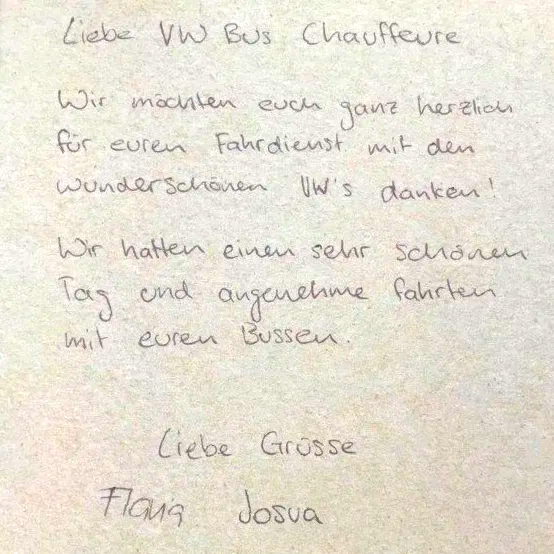 Liebe VW Bus Chauffeure
Wir möchten euch ganz herzlich
für euren Fahrdienst mit den
wunderschönen VW's danken!
Wir hatten einen sehr schönen
Tag und angenehme Fahrten
mit euren Bussen.
Liebe Grüsse
Flavia Josua